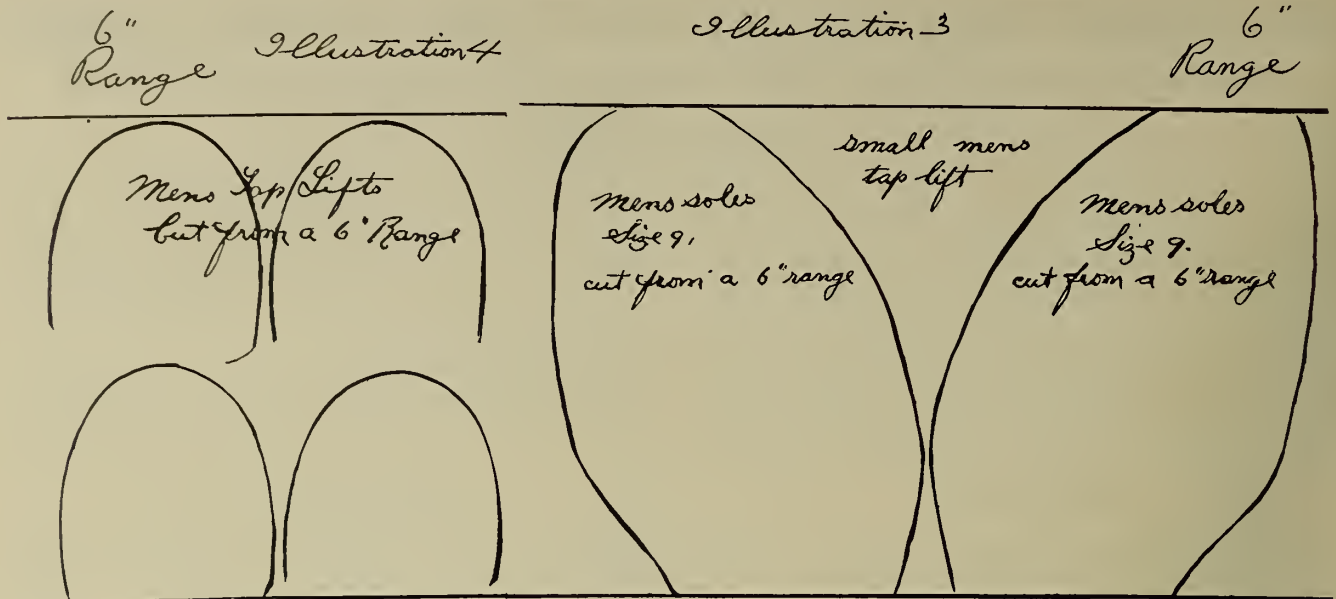 6"
Range
Illustration 4
Mens Tap Lifts
cut from a 6" Range
Illustration 3
6"
Range
small mens
tap lift
mens soles
Size 9.
cut from a 6" range
mens soles
Size 9.
cut from a 6" range